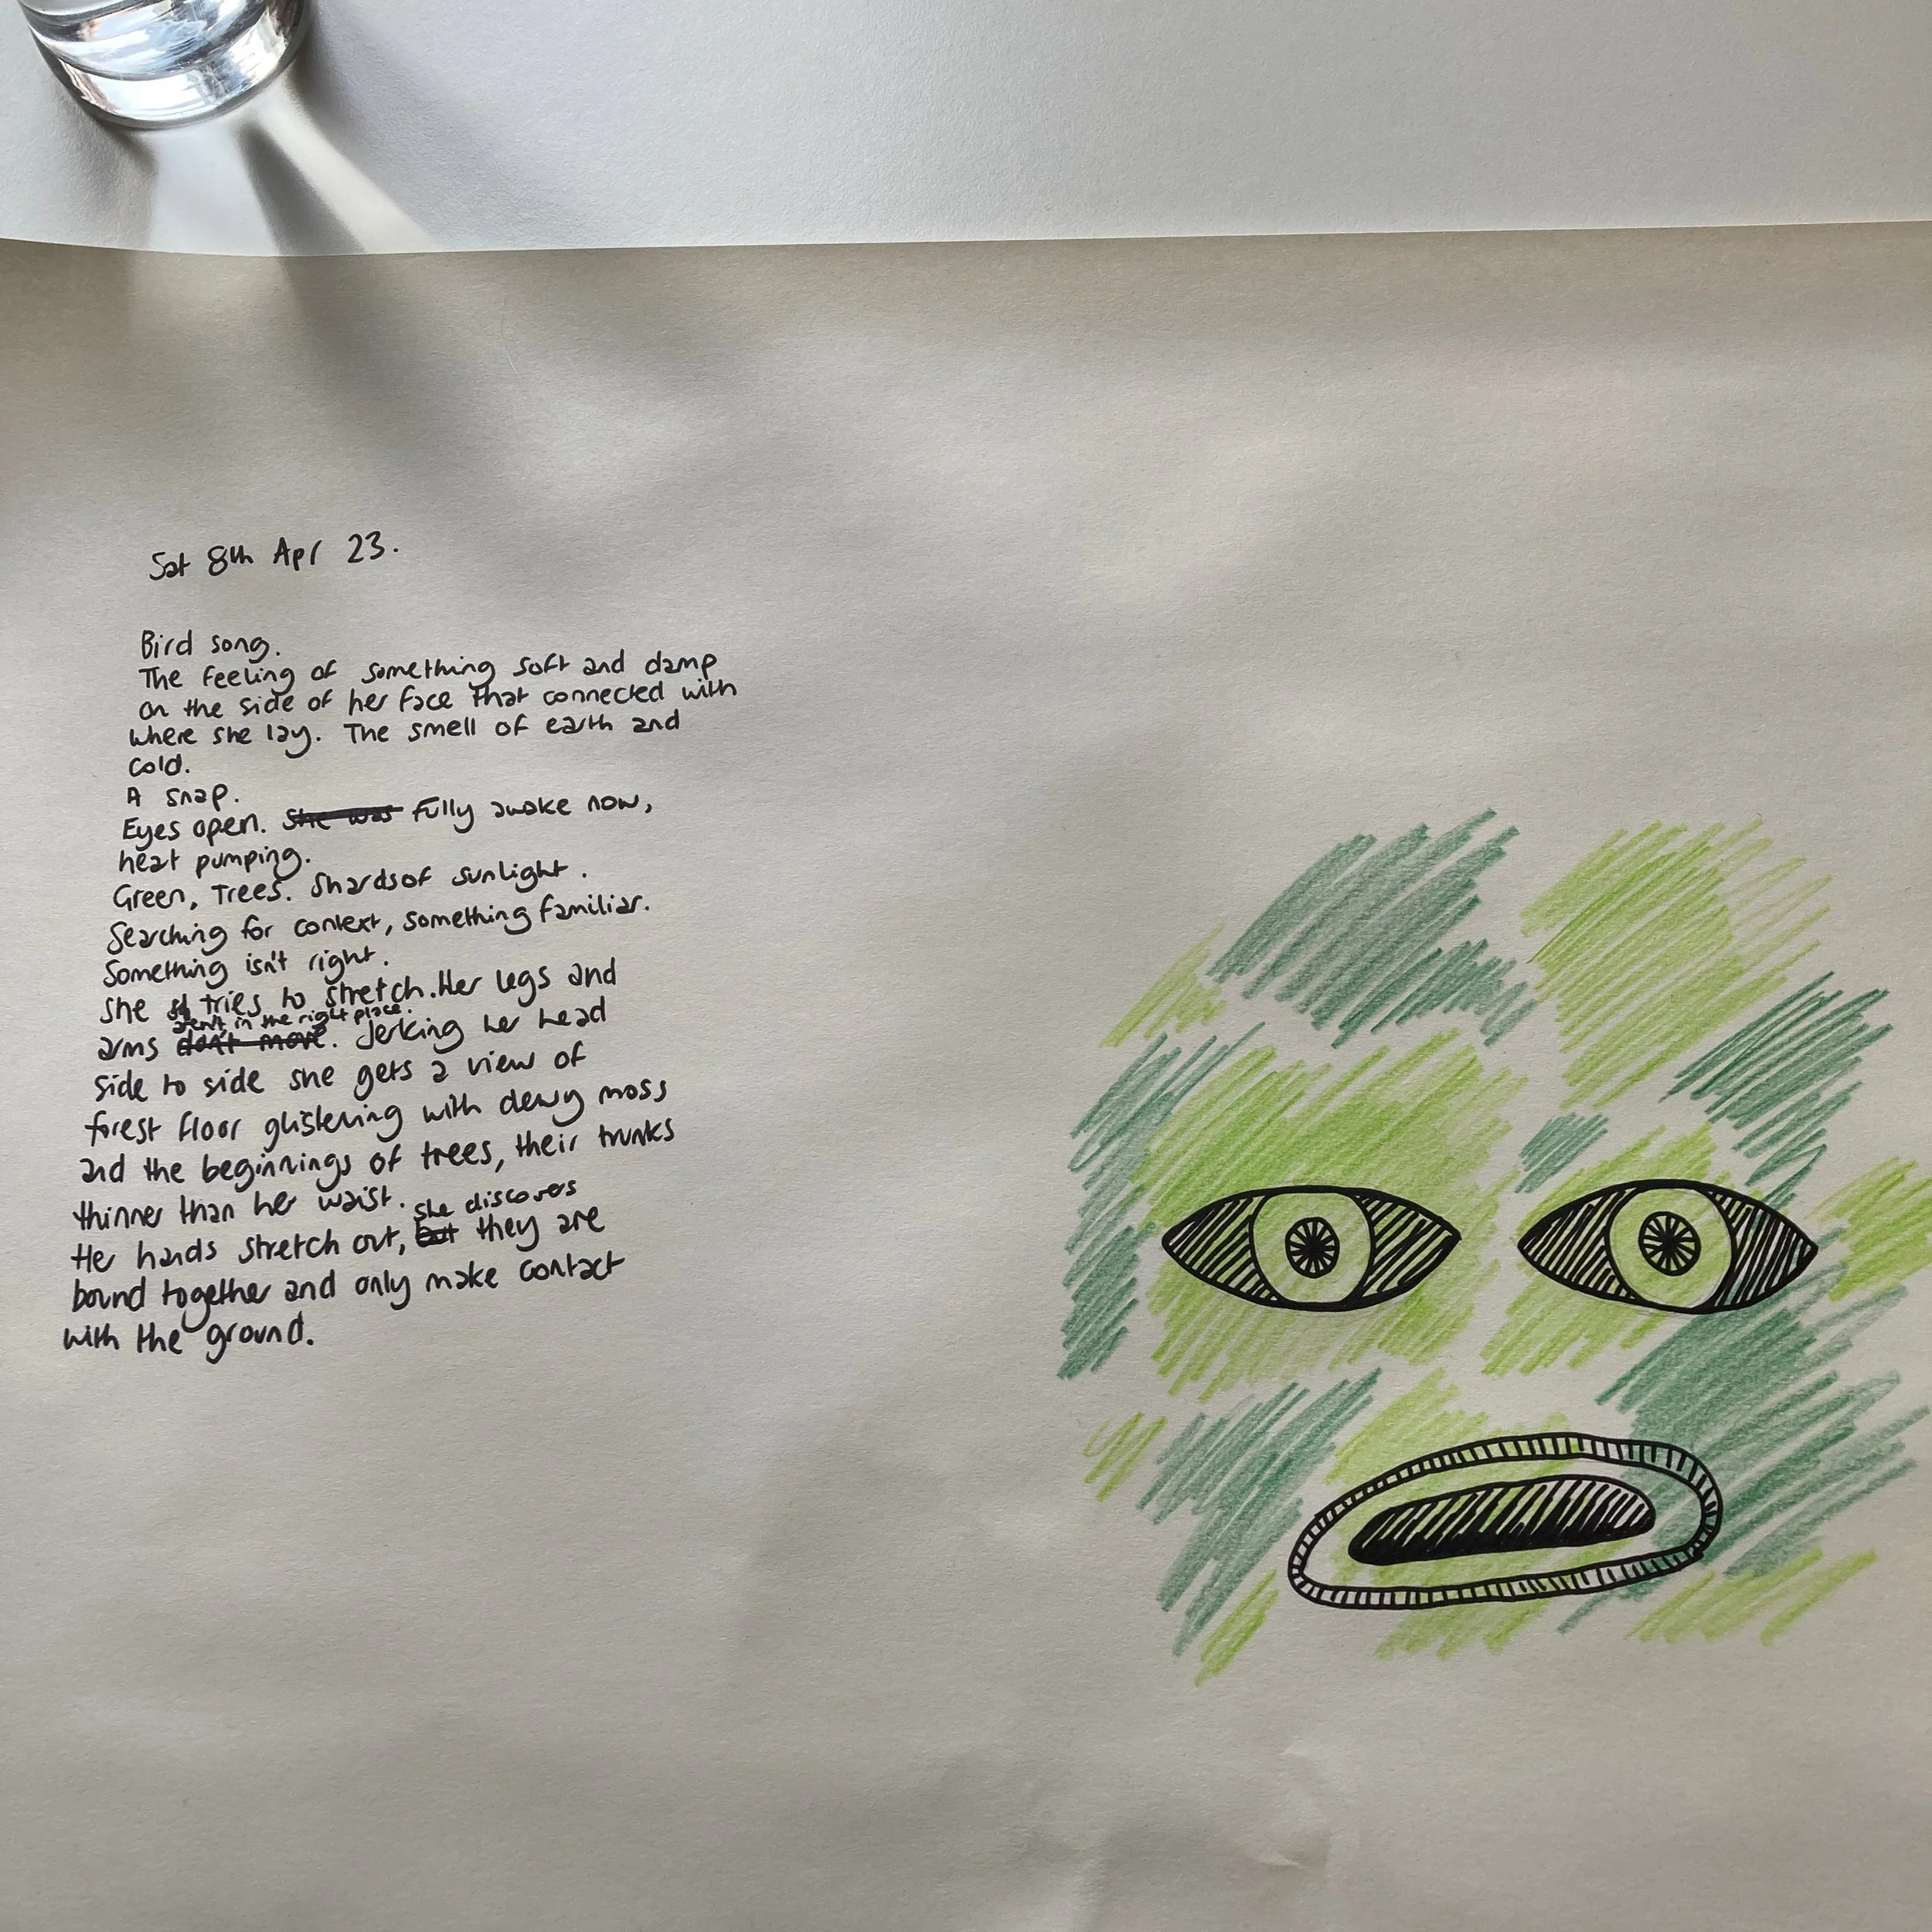 Sat 8th Apr 23.
Bird song.
The feeling of something soft and damp
on the side of her face that connected with
where she lay. The smell of earth and
cold.
A snap.
Eyes open. She was Fully awake now,
heat pumping.
Green, Trees. Shards of sunlight.
Searching for context, something familiar.
Something isn't right.
She st tries to stretch. Her legs and
aren't in the right place.
arms don't move. Jerking her head
side to side she gets a view of
forest floor glistening with dewy moss
and the beginnings of trees, their trunks
thinner than her waist.
she discovers
He hands stretch out, but they are
bound together and only make contact
with the ground.